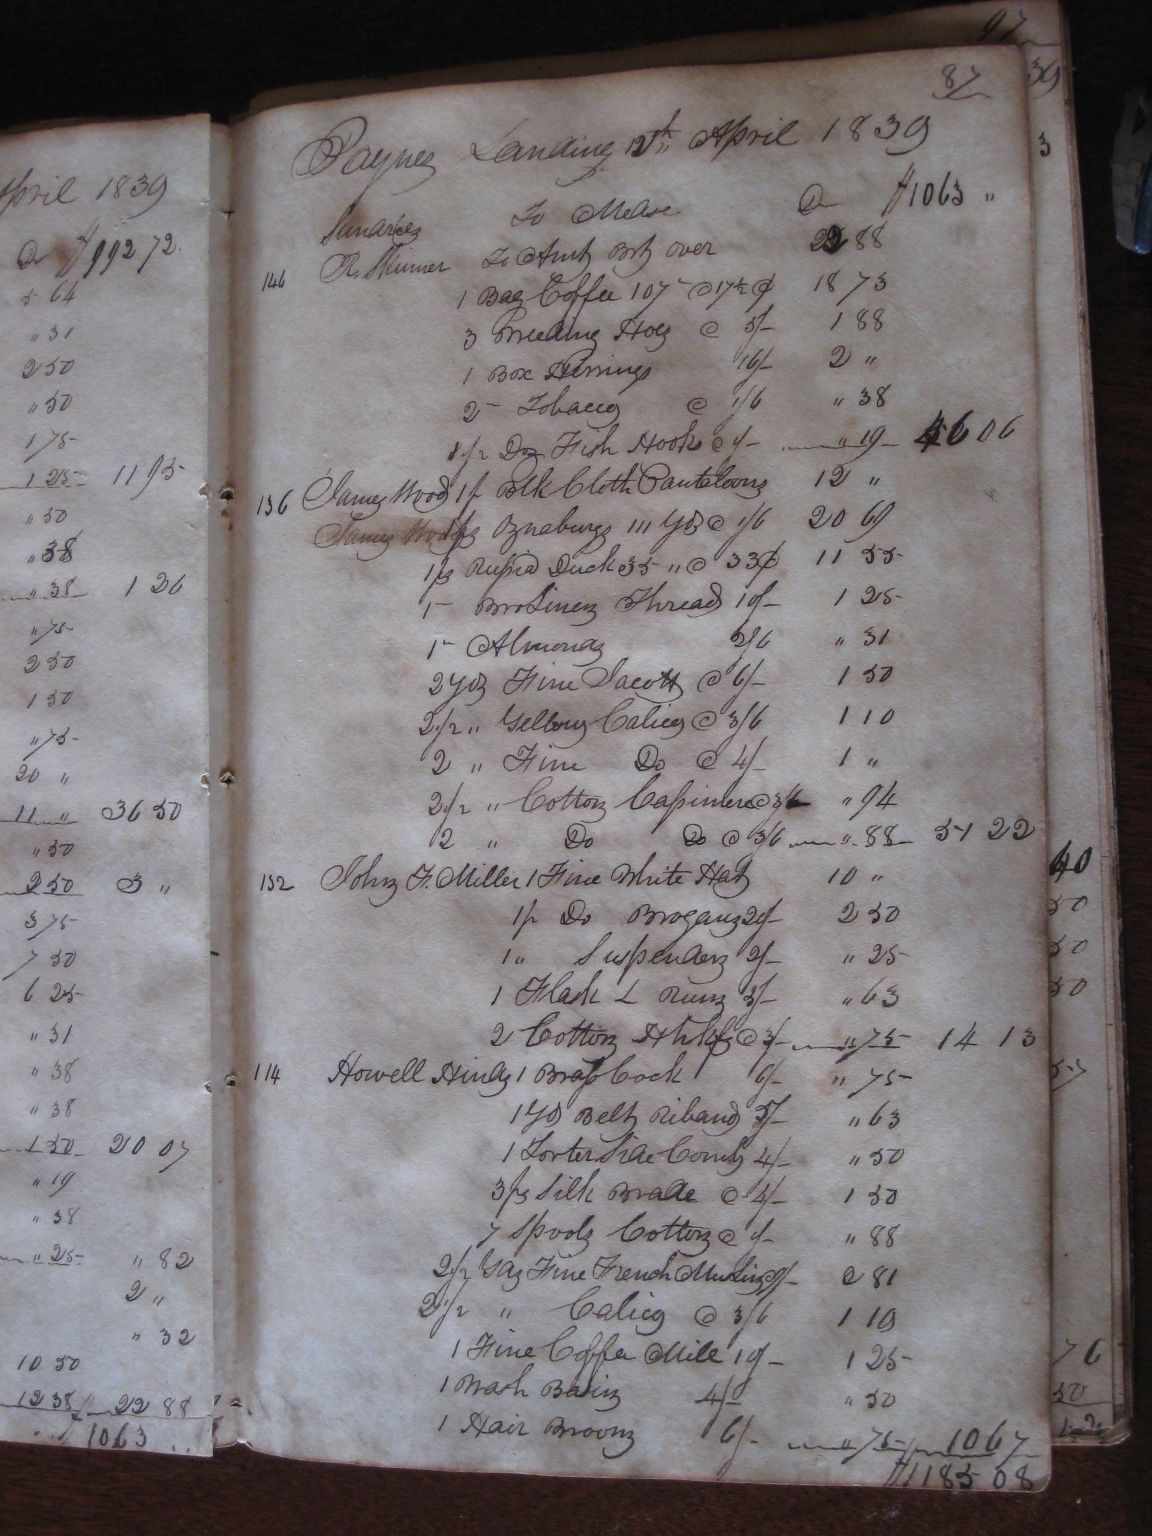 April 1839
Dr $992 72
5 64
" 31
2 50
" 50
1 75
1 25 11 95
" 50
" 38
" 38 1 26
" 75
2 50
1 50
" 75
20 "
11 " 36 50
" 50
2 50 3 "
3 75
7 50
6 25
" 31
" 38
" 38
1 50 20 07
" 19
" 38
" 25 " 82
2 "
" 32
10 50
12 38 22 88
1063
87
Paynes Landing 12th April 1839
Sundries To Mdse Dr $1063 "
146 R. Skinner To Amt Brt over 22 88
1 Bag Coffee 107 @ 17½ ¢ 18 73
3 Weeding Hoes @ 5/- 1 88
1 Box Herrings 16/- 2 "
2 Tobacco @ 1/6 " 38
1/2 Doz Fish Hooks @ /- " 19 46 06
136 James Wood 1 pr Blk Cloth Pantaloons 12 "
James Wood 1 ps Oznaburgs 111 Yds @ 1/6 20 69
1 ps Russia Duck 35 " @ 33 ¢ 11 55
1 Bro Linen Thread 10/- 1 25
1 Almonds 2/6 " 31
2 Yds Fine Jacott @ 6/- 1 50
2 1/2 " Yellow Calico @ 3/6 1 10
2 " Fine Do @ 4/- 1 "
2 1/2 " Cotton Cassimere @ 3/6 " 94
2 " Do Do @ 3/6 " 88 51 22
132 John F. Miller 1 Fine White Hat 10 "
1 pr Do Brogans 20/- 2 50
1 " Suspenders 2/- " 25
1 Flask L Rum 5/- " 63
2 Cotton Hdkfs @ 3/- " 75 14 13
114 Howell Hinds 1 Brass Cock 6/- " 75
1 Yd Belt Riband 5/- " 63
1 Torter Side Comb 4/- " 50
3 ps Silk Brade @ 4/- 1 50
7 Spools Cotton @ /- " 88
2 1/2 Yds Fine French Muslin 9/- 2 81
2 1/2 " Calico @ 3/6 1 10
1 Fine Coffee Mill 10/- 1 25
1 Wash Basin 4/- " 50
1 Hair Broom 6/- " 75 10 67
$1185 08
97
39
3
40
50
50
50
57
76
50